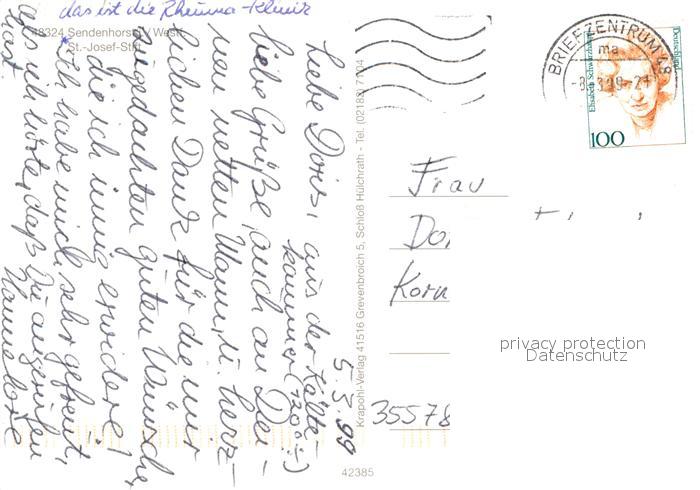 das ist die Rheuma-Klinik
48324 Sendenhorst / Westf.
St.-Josef-Stift
5.3.99
Liebe Doris, aus der Kälte-
kammer (-120°) 
liebe Grüße, auch an Dei-
nen netten Mann, u. herz-
lichen Dank für die mir
zugedachten guten Wünsche,
die ich innig erwidere!
Ich habe mich sehr gefreut,
als ich hörte, daß Du angerufen
hast.
Hannelore
Krapohl-Verlag 41516 Grevenbroich 5, Schloß Hülchrath - Tel. (02182) 7104
42385
BRIEFZENTRUM 48
ma
-8.3.99-21
Deutschland
Elisabeth Schwarzhaupt
100
Frau
Do
Korn
35578
privacy protection
Datenschutz